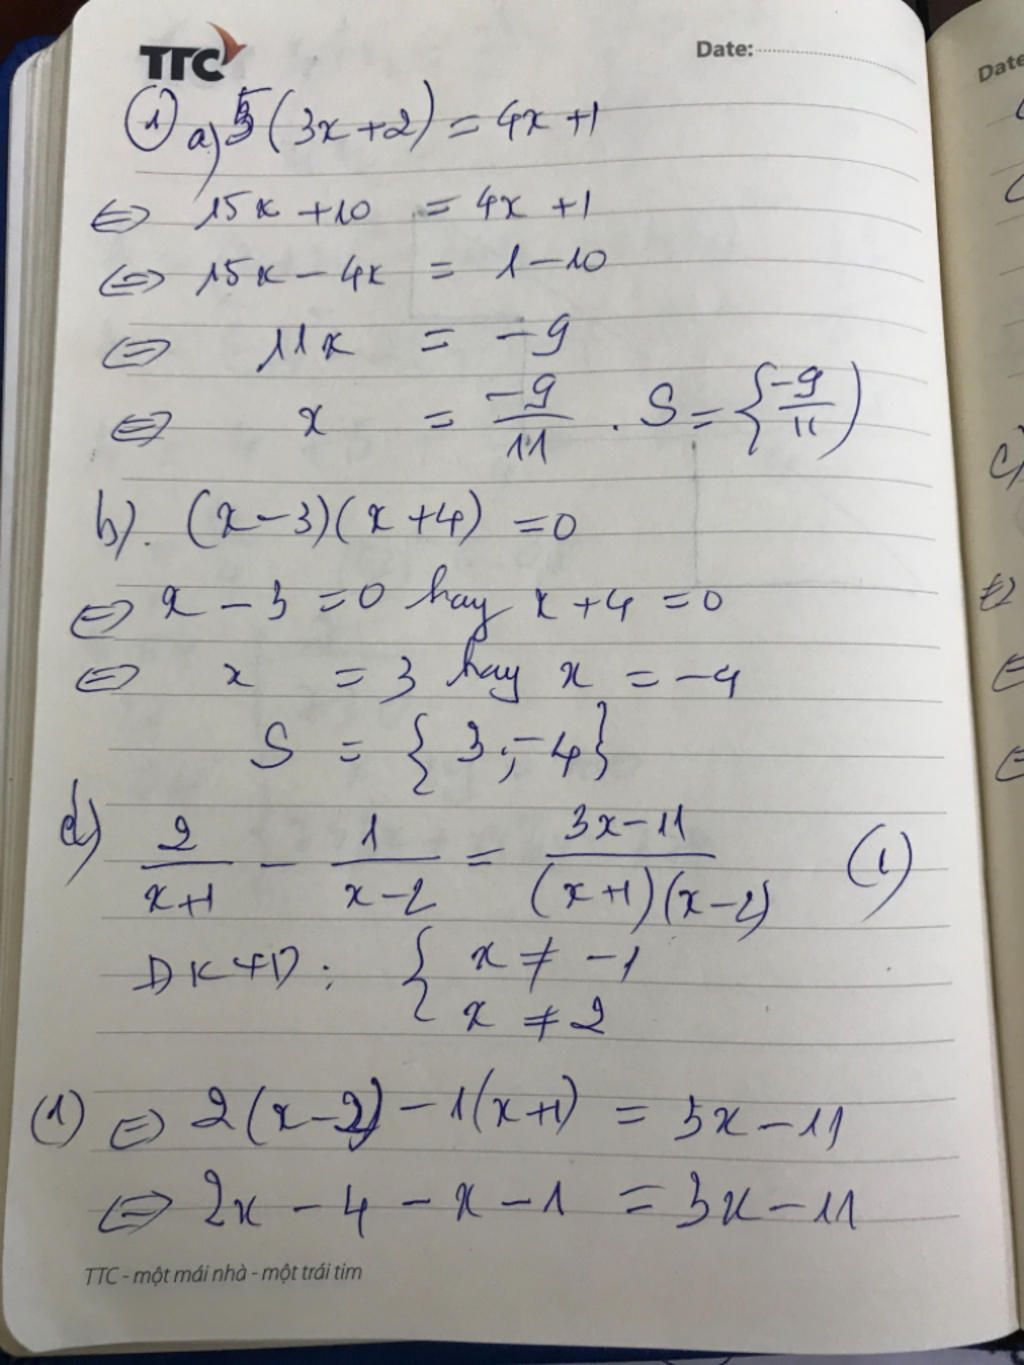 TTC
Date:
① a) 5(3x+2) = 4x+1
⇔ 15x+10 = 4x+1
⇔ 15x-4x = 1-10
⇔ 11x = -9
⇔ x = -9/11 . S = {-9/11)
b). (x-3)(x+4) = 0
⇔ x-3=0 hay x+4=0
⇔ x = 3 hay x = -4
S = {3;-4}
d) 2/(x+1) - 1/(x-2) = (3x-11)/((x+1)(x-2)) (1)
ĐKXĐ: { x ≠ -1
x ≠ 2
(1) ⇔ 2(x-2) - 1(x+1) = 3x-11
⇔ 2x-4-x-1 = 3x-11
TTC - một mái nhà - một trái tim
Date
c)